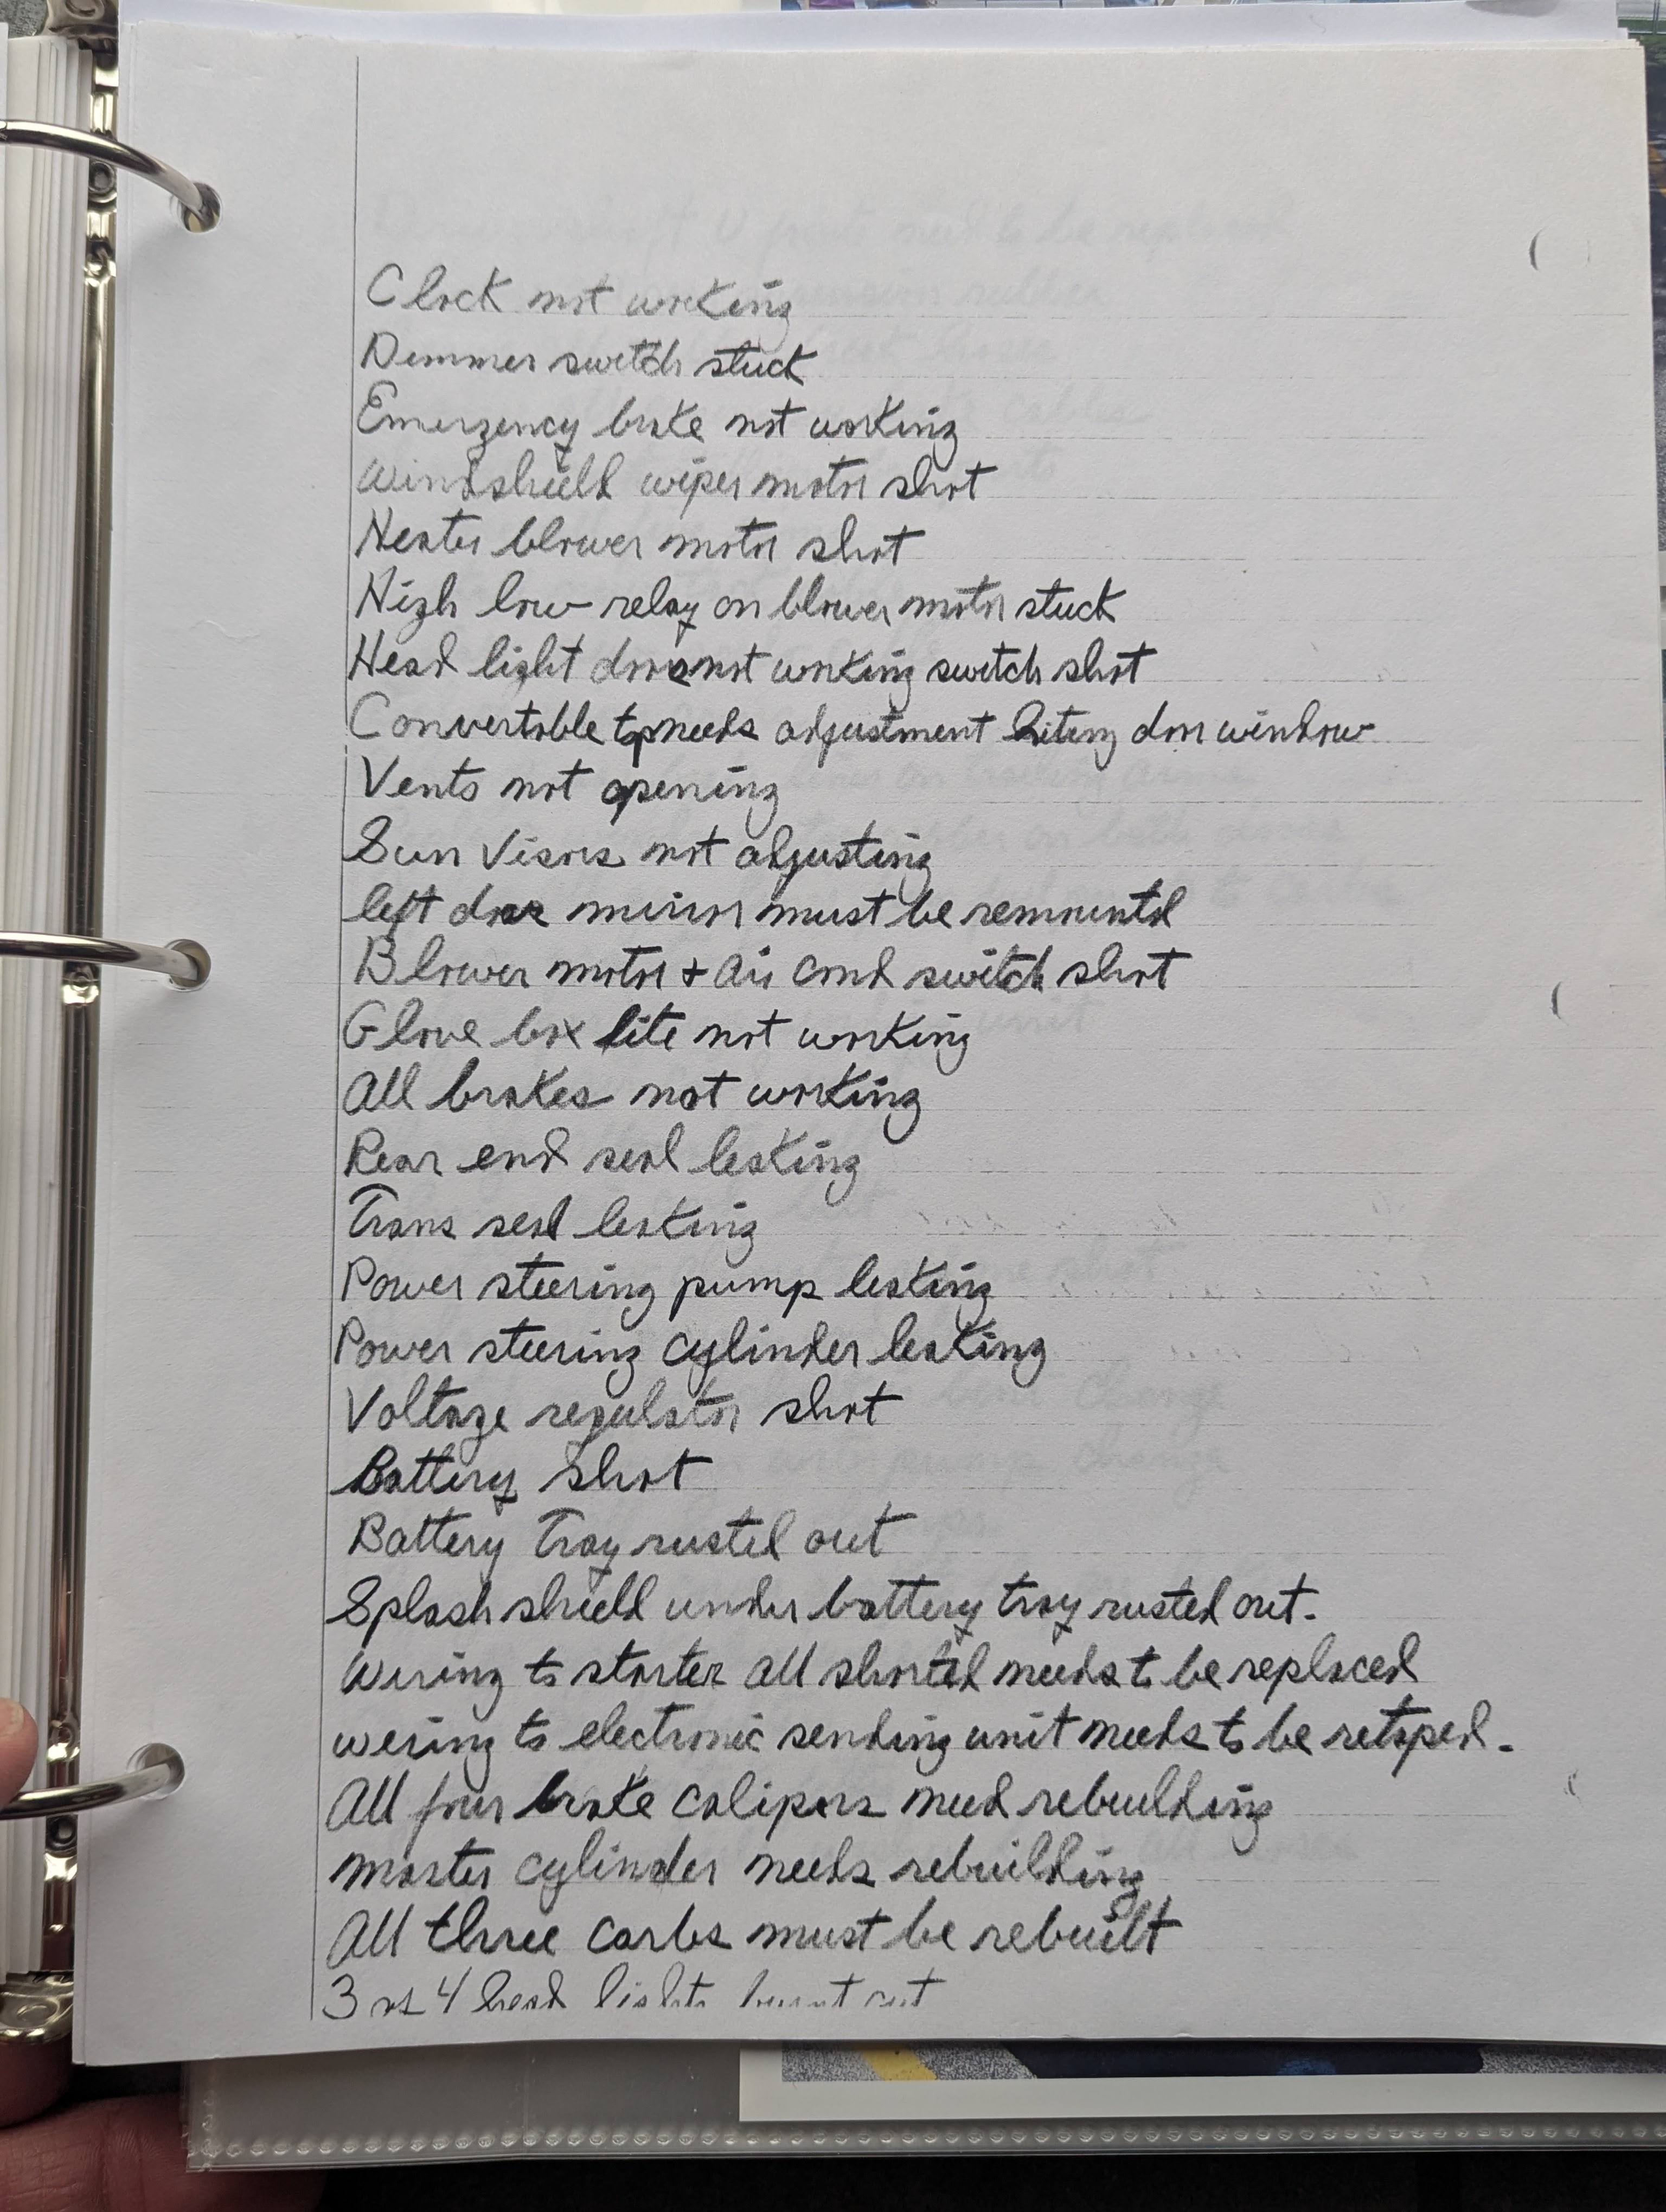 Clock not working
Dimmer switch stuck
Emergency brake not working
Windshield wiper motor shot
Heater blower motor shot
High low relay on blower motor stuck
Head light doors not working switch shot
Convertible top needs adjustment hiting door window
Vents not opening
Sun Visors not adjusting
left door mirror must be remounted
Blower motor + air cond switch shot
Glove box lite not working
All brakes not working
Rear end seal leaking
Trans seal leaking
Power steering pump leaking
Power steering cylinder leaking
Voltage regulator shot
Battery shot
Battery Tray rusted out
Splash shield under battery tray rusted out.
Wiring to starter all shorted needs to be replaced
wiring to electronic sending unit needs to be retaped.
All four brake calipers need rebuilding
master cylinder needs rebuilding
All three carbs must be rebuilt
3 of 4 head lights burnt out